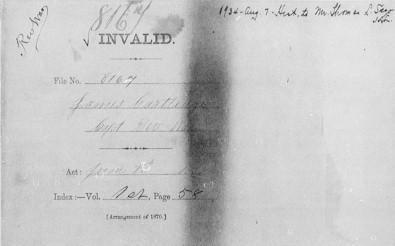 Rev War
8167
INVALID.
File No. 8167
James Cartledge
Capt Rev War
Act:
Index:—Vol. 1st, Page 58
[Arrangement of 1870.]
1924-Aug. 7-Hist. to Mr. Thomas L.